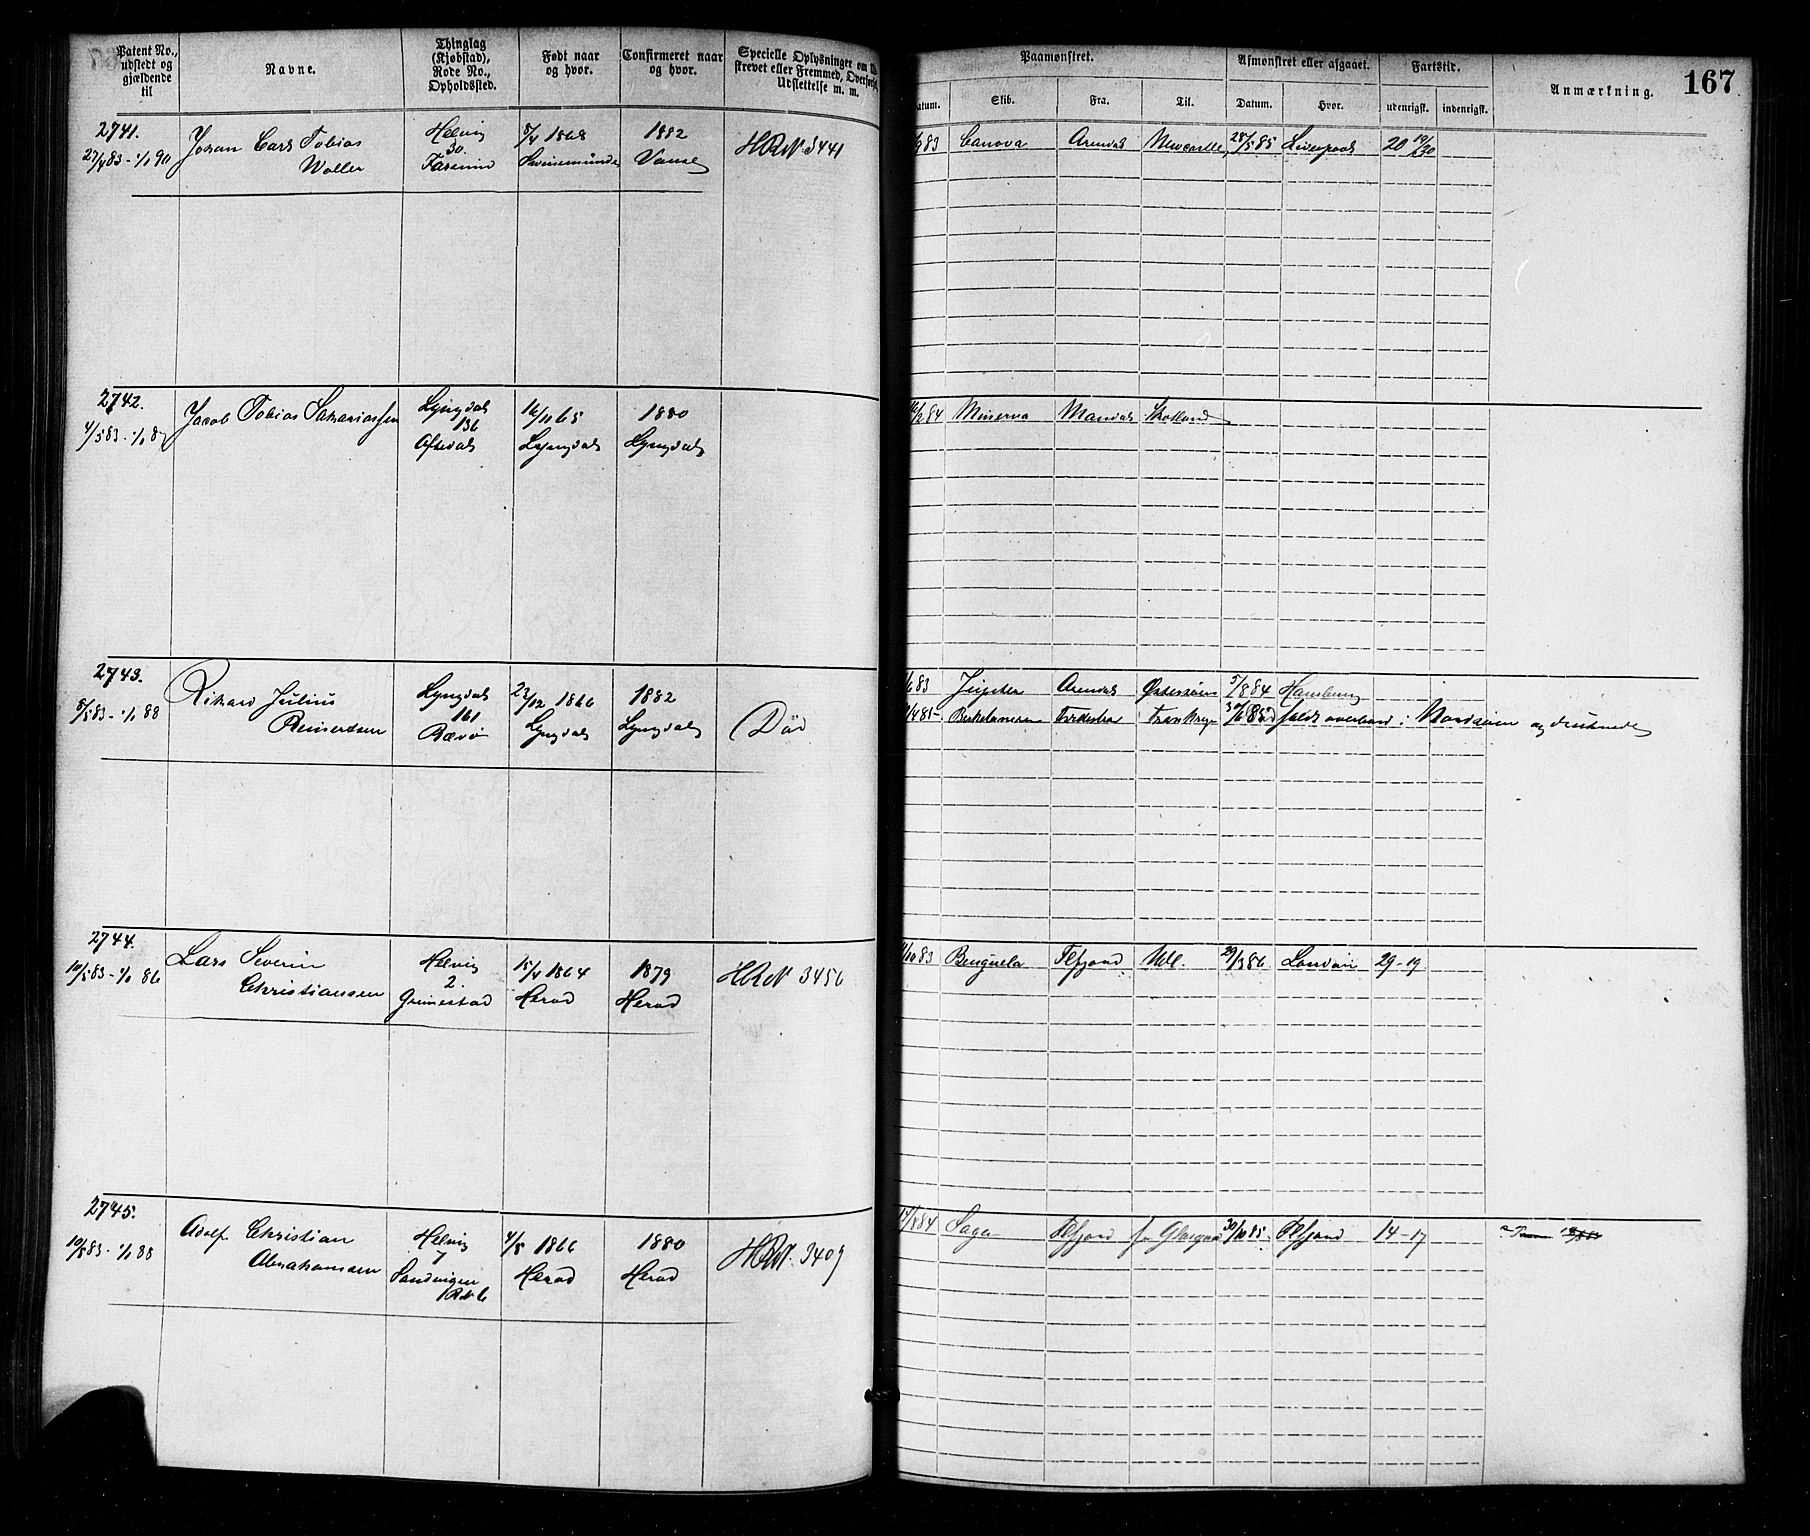 167
Patent No., udstedt og gjældende til
Navne.
Thinglag (Kjøbstad), Rode No., Opholdssted.
Født naar og hvor.
Confirmeret naar og hvor.
Specielle Oplysninger om
strevet eller Fremmed, Overført,
Udslettelse m. m.
Paamønstret.
Afmønstret eller afgaaet.
Fartstid.
Anmærkning.
Skib.
Fra.
Til.
Datum.
Hvor.
udenrigsk.
indenrigsk.
2741.
27/4 83 - 1/1 90
Johan Carl Tobias
Woller
Helvig
30.
Farsund
1868
Swinemünde
1882
Vanse
3441
Canova
Arendal
Newcastle
28/5 85
Liverpool
20
2742.
4/5 83 - 1/1 87
Jacob Tobias Sakariassen
Lyngdal
136
Oftedal
16/11 65
Lyngdal
1880
Lyngdal
84
Minerva
Mandal
Skotland
2743.
8/5 83 - 1/1 88
Rikard Julius
Reinertsen
Lyngdal
161
Rævø
23/12 1866
Lyngdal
1882
Lyngdal
Død
83
Jupiter
Arendal
Østersøen
5/8 84
Hamburg
Frankrige
faldt overbord i Nordsøen og druknede
2744.
10/5 83 - 1/1 86
Lars Severin
Christiansen
Helvig
2.
Grunnestad
15/4 1864
Herad
1879
Herad
3456
83
Benguela
Flefjord
Hull.
29/3 86
London
29-19
2745.
10/5 83 - 1/1 88
Adolf Christian
Abrahamsen
Helvig
7
Sandvigen
4/5 1866
Herad
1880
Herad
3409
84
Saga
Flefjord
Glasgow
30/10 85.
Flefjord
14-17